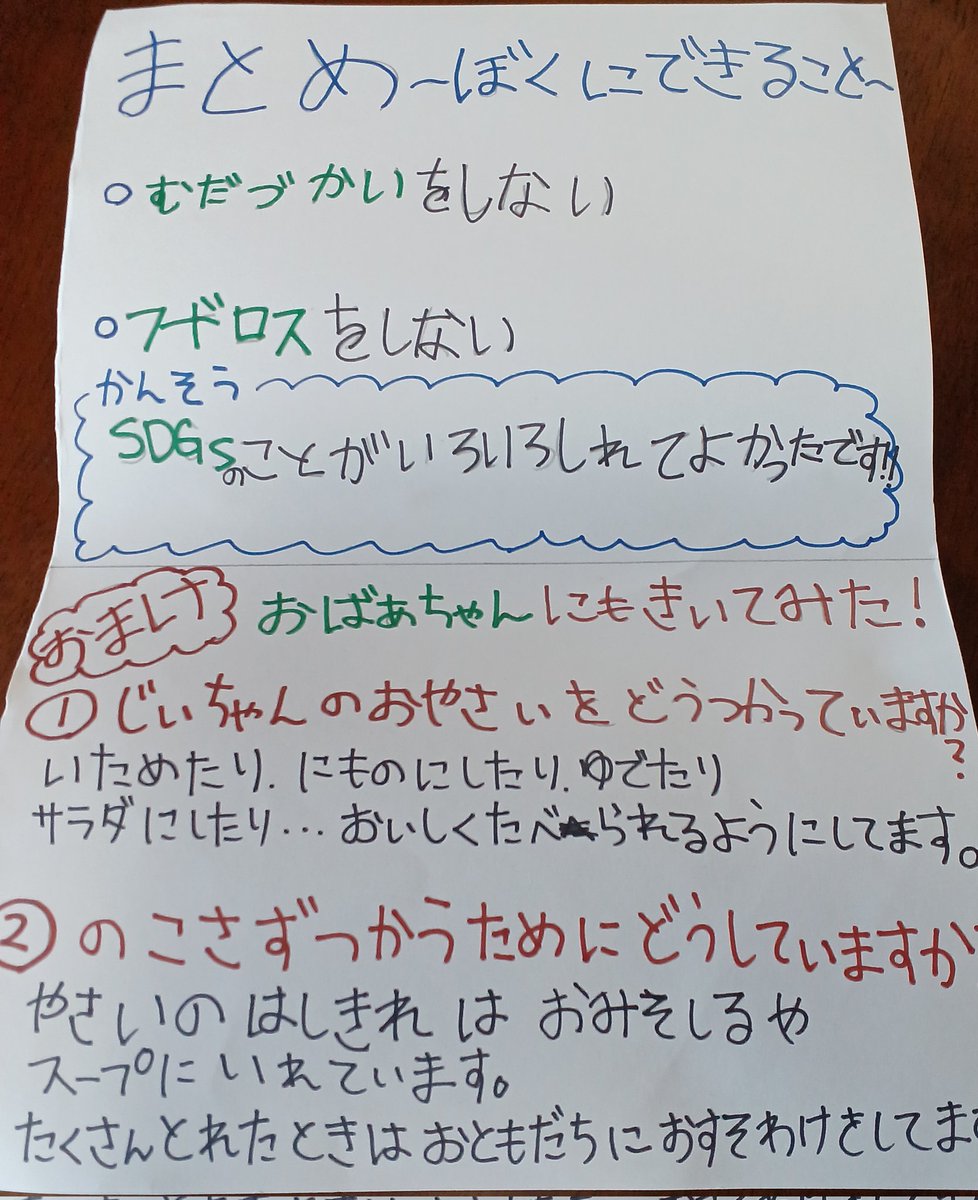 まとめ～ぼくにできること～
○むだづかいをしない
○フードロスをしない
かんそう
SDGsのことがいろいろしれてよかったです!!
おまけ おばあちゃんにもきいてみた！
①じいちゃんのおやさいをどうつかっていますか？
いためたり、にものにしたり、ゆでたり
サラダにしたり…おいしくたべられるようにしてます。
②のこさずつかうためにどうしていますか
やさいのはしきれはおみそしるや
スープにいれています。
たくさんとれたときはおともだちにおすそわけをしてます